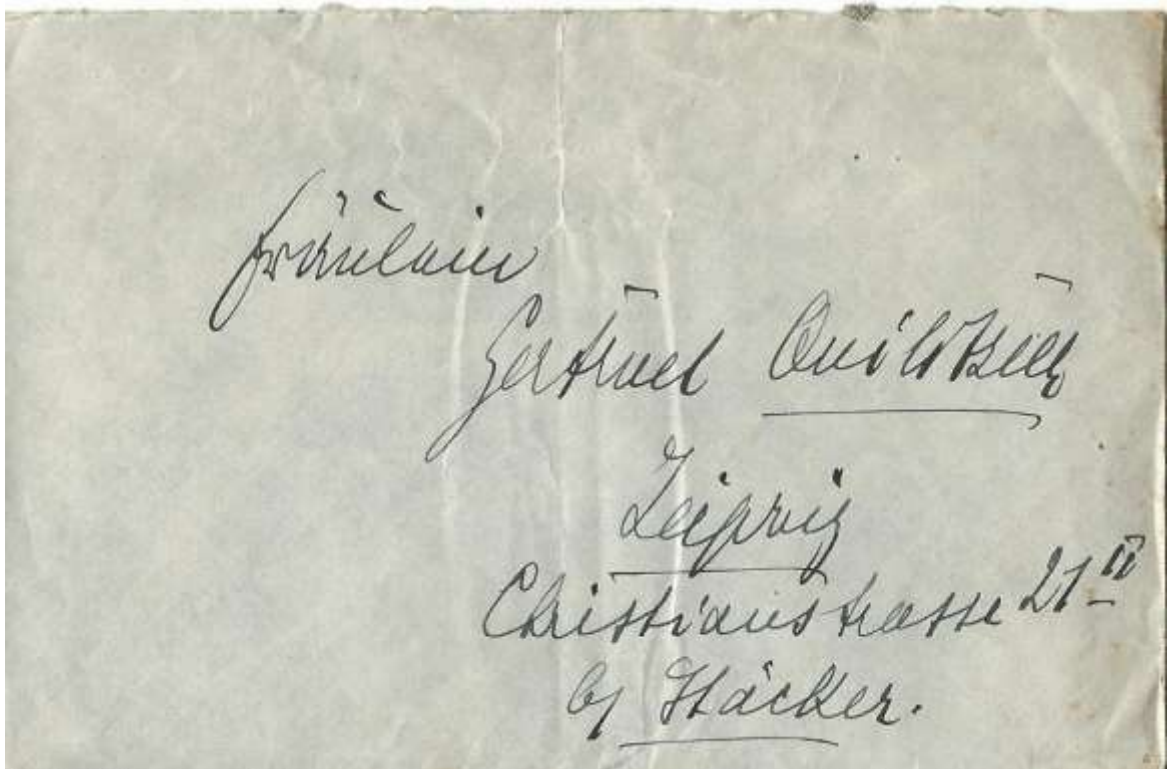 Fräulein
Gertrud
Leipzig
Christianstrasse 21 II
b/ Häcker.